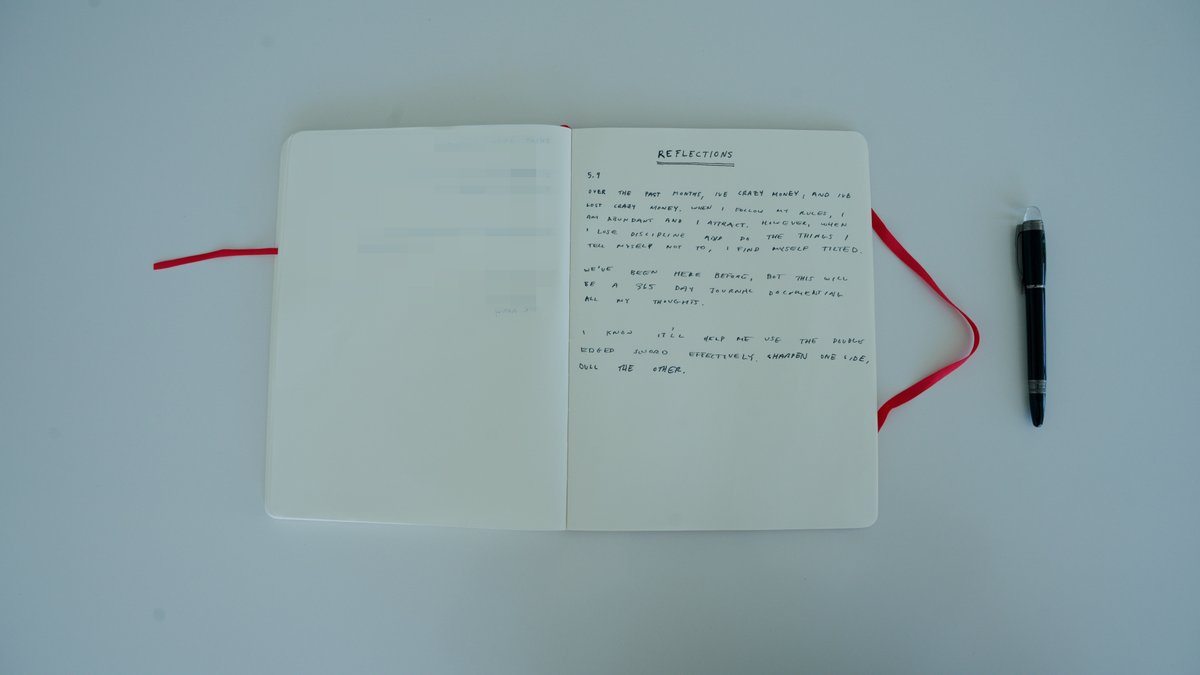 REFLECTIONS
5.9
OVER THE PAST MONTHS, IVE CRAZY MONEY, AND IVE
LOST CRAZY MONEY. WHEN I FOLLOW MY RULES, I
AM ABUNDANT AND I ATTRACT. HOWEVER, WHEN
I LOSE DISCIPLINE AND DO THE THINGS I
TELL MYSELF NOT TO, I FIND MYSELF TILTED.
WE'VE BEEN HERE BEFORE, BUT THIS WILL
BE A 365 DAY JOURNAL DOCUMENTING
ALL MY THOUGHTS.
I KNOW IT'LL HELP ME USE THE DOUBLE
EDGED SWORD EFFECTIVELY. SHARPEN ONE SIDE,
DULL THE OTHER.